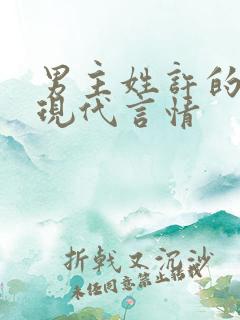 男主姓許的
現代言情
折戟又沉沙
未经同意禁止转载